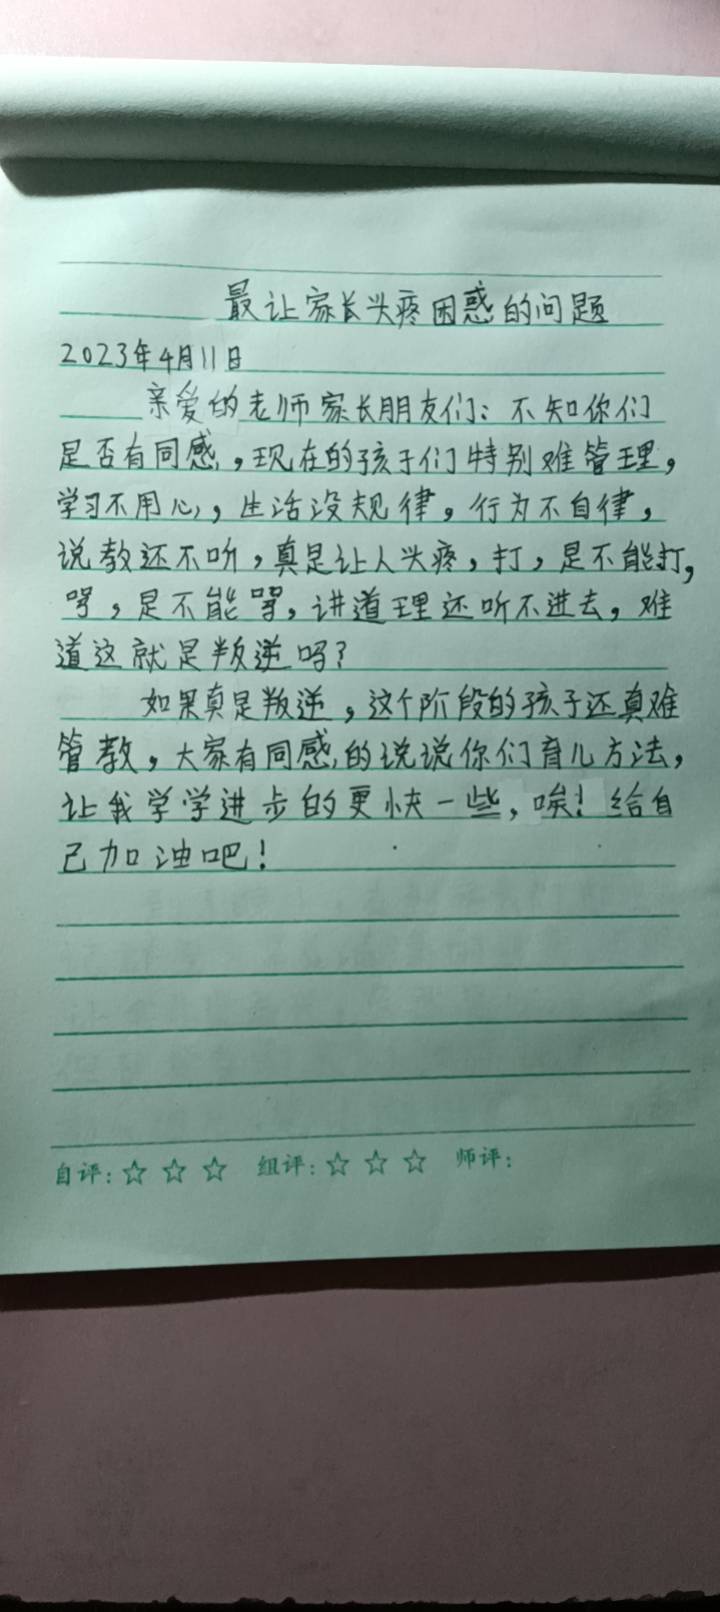 最让家长头疼困惑的问题
2023年4月11日
亲爱的老师家长朋友们：不知你们
是否有同感，现在的孩子们特别难管理，
学习不用心，生活没规律，行为不自律，
说教还不听，真是让人头疼，打，是不能打，
骂，是不能骂，讲道理还听不进去，难
道这就是叛逆吗？
如果真是叛逆，这个阶段的孩子还真难
管教，大家有同感的说说你们育儿方法，
让我学学进步的更快一些，唉！给自
己加油吧！
自评：☆ ☆ ☆ 组评：☆ ☆ ☆ 师评：